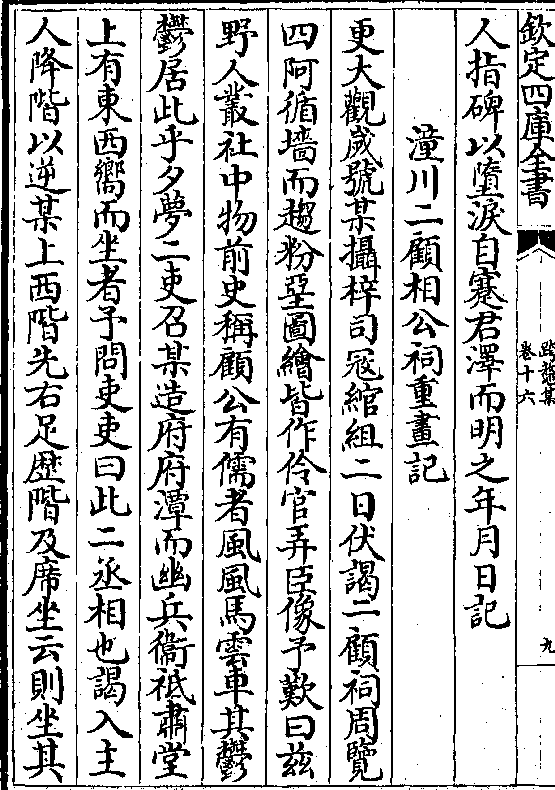 欽定四庫全書
跨鼇集
卷十六
九
人指碑以墮淚自蹇君澤而明之年月日記
潼川二顧相公祠重畫記
更大觀歲號某攝梓司寇綰組二日伏謁二顧祠周覽
四阿循墻而趨粉堊圖繪皆作伶官弄臣像予歎曰兹
野人叢社中物前史稱顧公有儒者風風馬雲車其鬱
鬱居此乎夕夢二吏召某造府府潭而幽兵衞祗肅堂
上有東西嚮而坐者予問吏吏曰此二丞相也謁入主
人降階以逆某上西階先右足歴階及席坐云則坐其